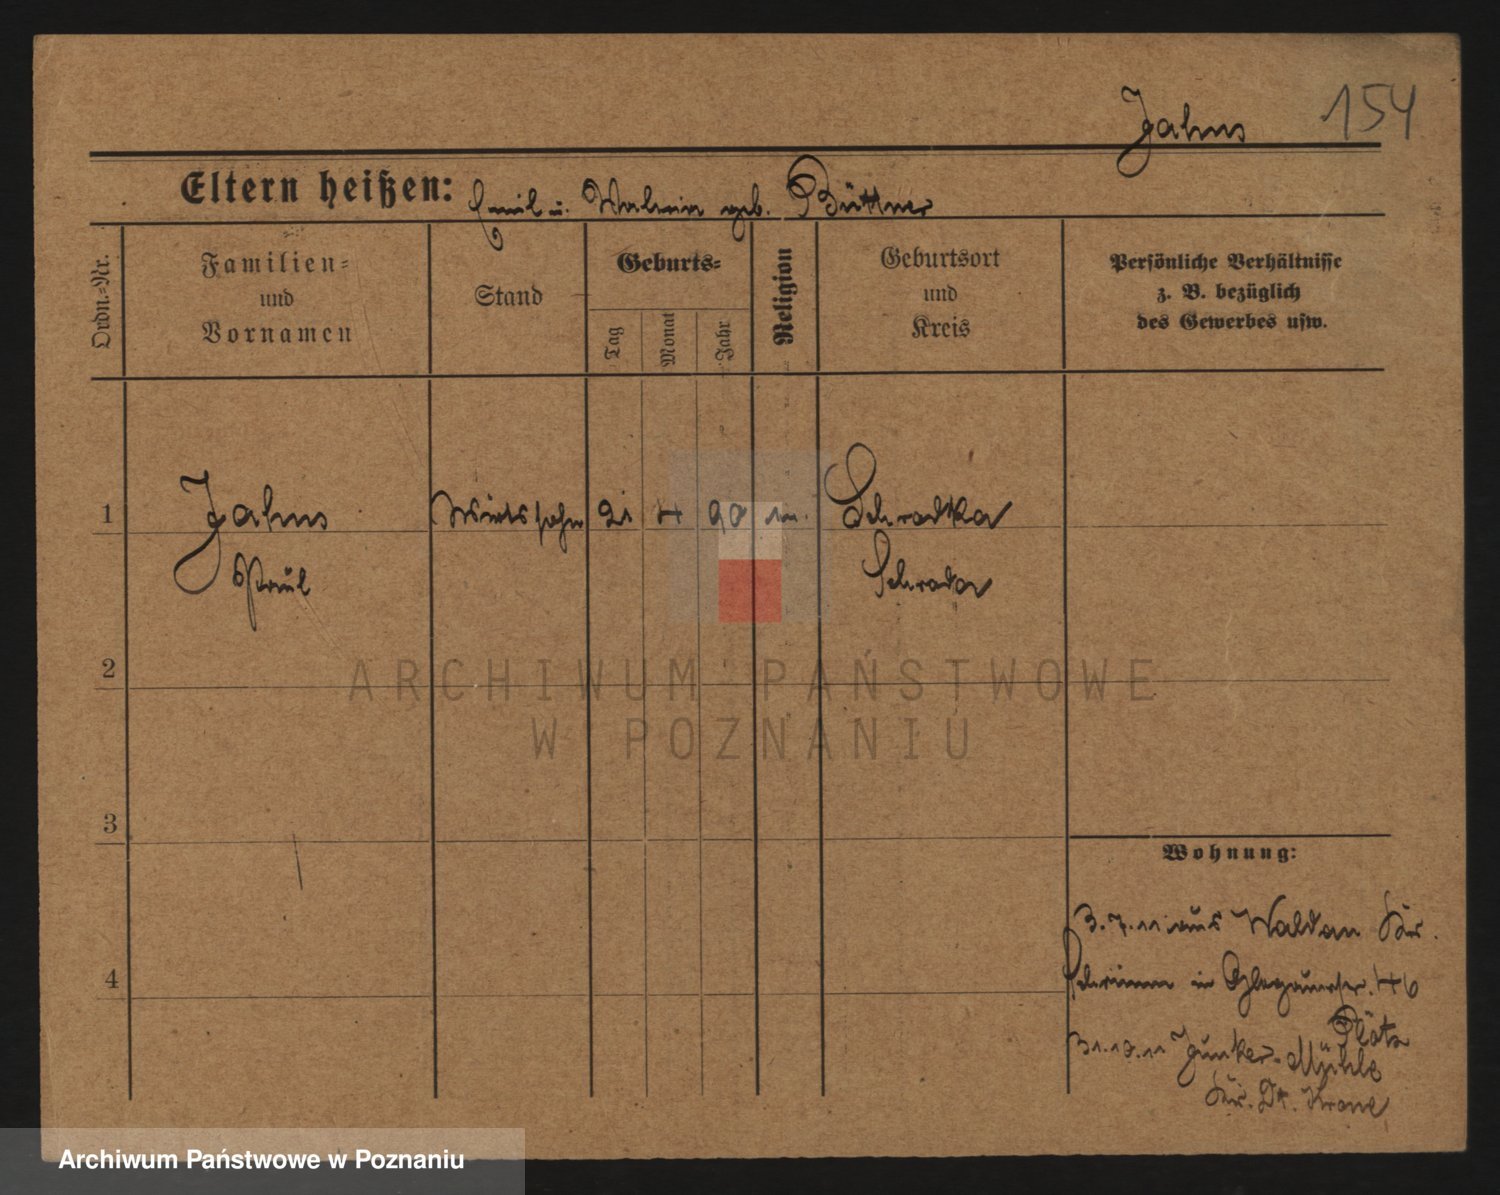 Jahns 154
Eltern heißen: Emil u. geb. Büttner
Ordn.-Nr.
Familien-
und
Vornamen
Stand
Geburts-
Tag
Monat
Jahr
Religion
Geburtsort
und
Kreis
Persönliche Verhältnisse
z. B. bezüglich
des Gewerbes usw.
1 Jahns Wirtssohn 21 4 90 Schrodka
Paul Schroda
2
3
4
Wohnung:
3.7.11 aus Waldau Kr.
Schrimm in Glogauerstr. 46
Plötz
31.10.11 Junker-Mühle
Kr. Dt. Krone
ARCHIWUM PAŃSTWOWE
W POZNANIU
Archiwum Państwowe w Poznaniu